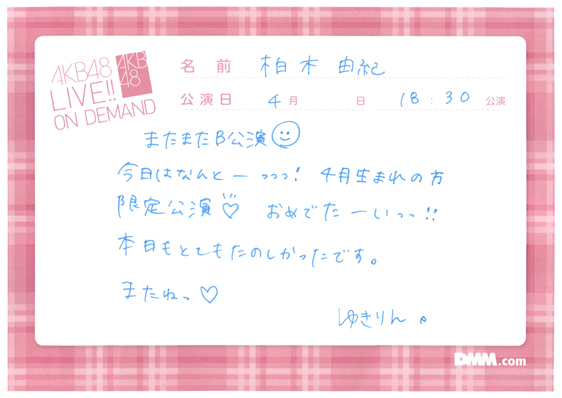 AKB48
LIVE!!
ON DEMAND
AKB
48
名前 柏木由紀
公演日 4月 日 18:30 公演
またまたB公演
今日はなんとーっっっ! 4月生まれの方
限定公演♡ おめでたーいっっ!!
本日もとてもたのしかったです。
またねっ♡
ゆきりん
DMM.com